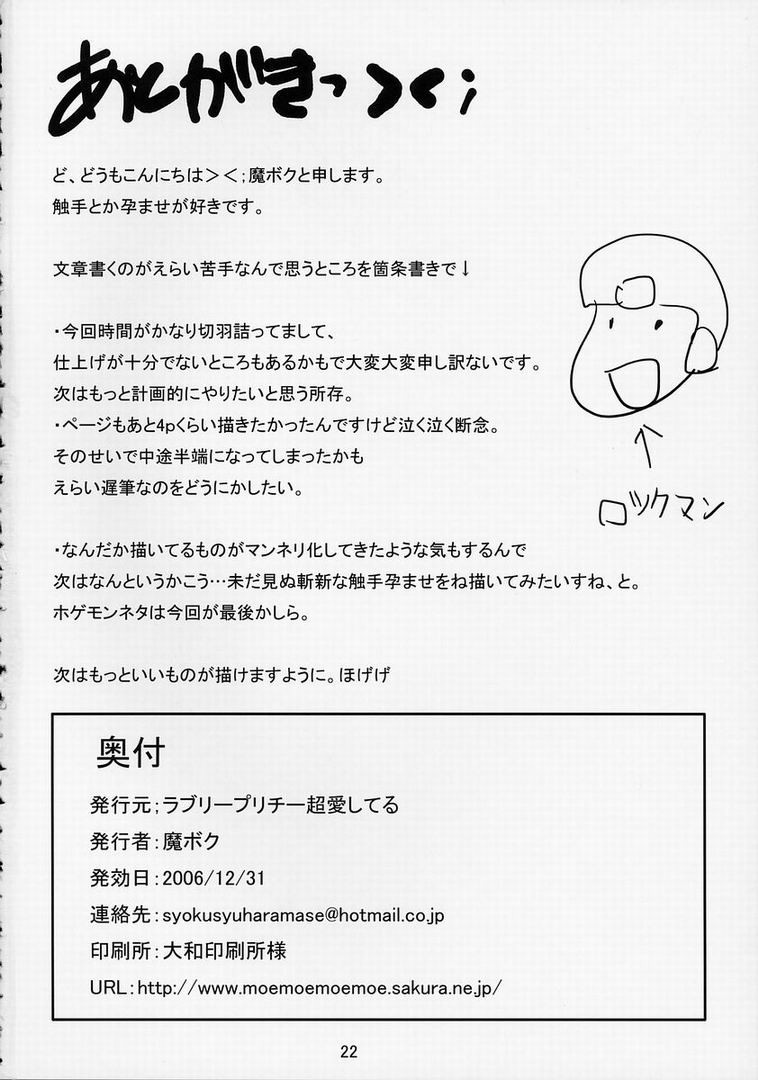 あとがきっ＞＜；
ど、どうもこんにちは＞＜；魔ボクと申します。
触手とか孕ませが好きです。
文章書くのがえらい苦手なんで思うところを箇条書きで↓
・今回時間がかなり切羽詰ってまして、
仕上げが十分でないところもあるかもで大変大変申し訳ないです。
次はもっと計画的にやりたいと思う所存。
・ページもあと4pくらい描きたかったんですけど泣く泣く断念。
そのせいで中途半端になってしまったかも
えらい遅筆なのをどうにかしたい。
ロックマン
・なんだか描いてるものがマンネリ化してきたような気もするんで
次はなんというかこう…未だ見ぬ斬新な触手孕ませをね描いてみたいすね、と。
ホゲモンネタは今回が最後かしら。
次はもっといいものが描けますように。ほげげ
奥付
発行元；ラブリープリチー超愛してる
発行者：魔ボク
発効日：2006/12/31
連絡先：syokusyuharamase@hotmail.co.jp
印刷所：大和印刷所様
URL：http://www.moemoemoemoe.sakura.ne.jp/
22